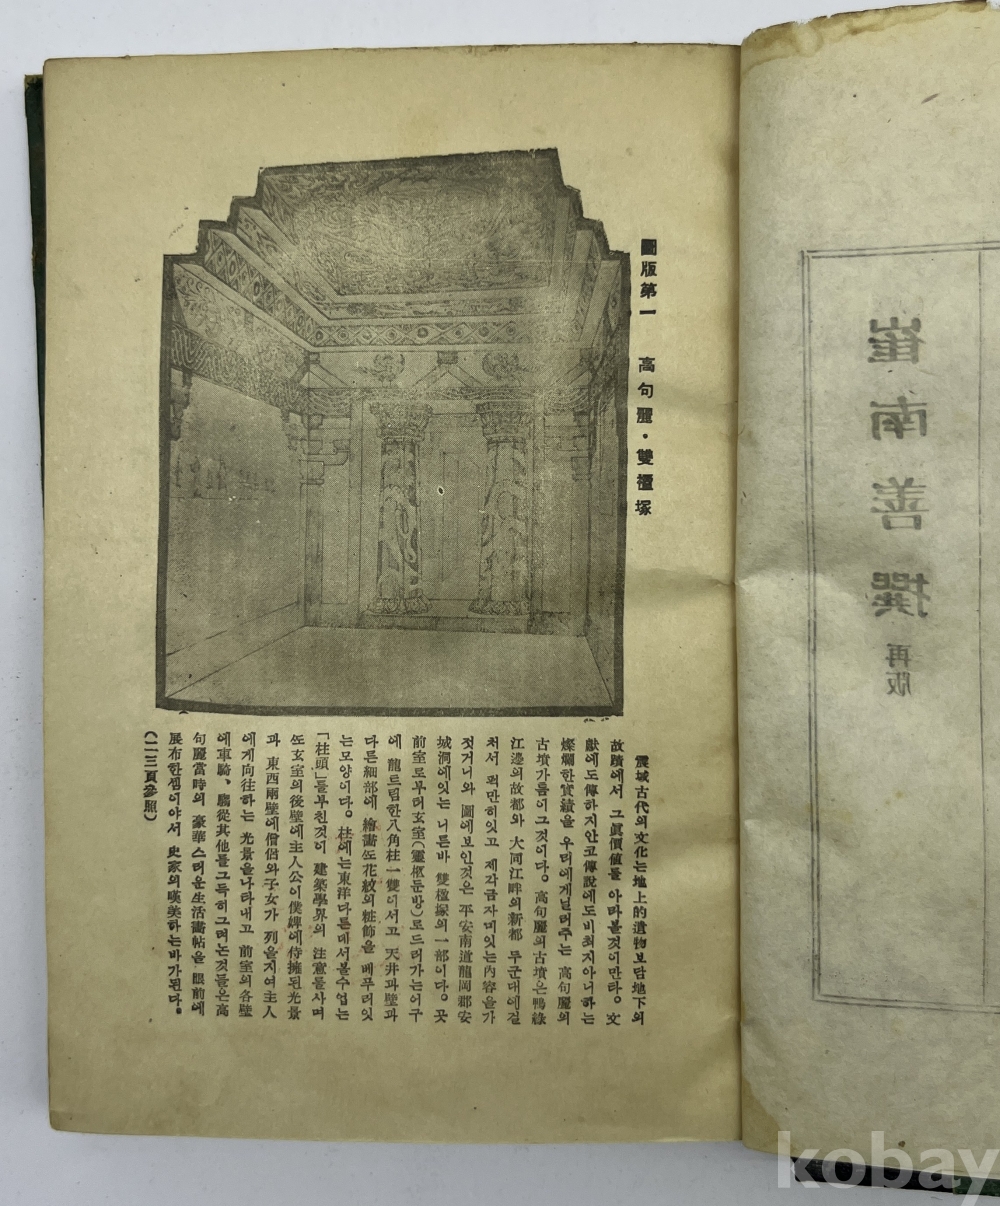 圖版第一 高句麗·雙楹塚
震域古代의文化는地上的遺物보담地下의
故蹟에서 그眞價値를 아라볼것이만타。文
獻에도傳하지안코傳說에도비최지아니하는
燦爛한實績을 우리에게닐러주는 高句麗의
古墳가틈이그것이다。高句麗의古墳은鴨綠
江邊의故都와 大同江畔의新都 두군대에걸
처서 퍽만히잇고 제각금자미잇는內容을가
젓거니와 圖에보인것은 平安南道龍岡郡安
城洞에잇는 니른바 雙楹塚의一部이다。곳
前室로부터玄室(靈柩둔방)로드러가는어구
에 龍트림한八角柱一雙이서고 天井과壁과
다른細部에 繪畵또花紋의粧飾을 베푸러잇
는모양이다。柱에는東洋다른데서볼수업는
「柱頭」를부친것이 建築學界의 注意를사며
또玄室의後壁에主人公이僕婢에侍擁된光景
과 東西兩壁에僧侶와子女가 列을지여主人
에게向往하는 光景을나타내고 前室의各壁
에車騎、騶從其他를그득히그려논것들은高
句麗當時의 豪華스러운生活畵帖을 眼前에
展布한셈이야서 史家의嘆美하는바가된다。
(二三頁參照)
崔南善撰 再版
kobay